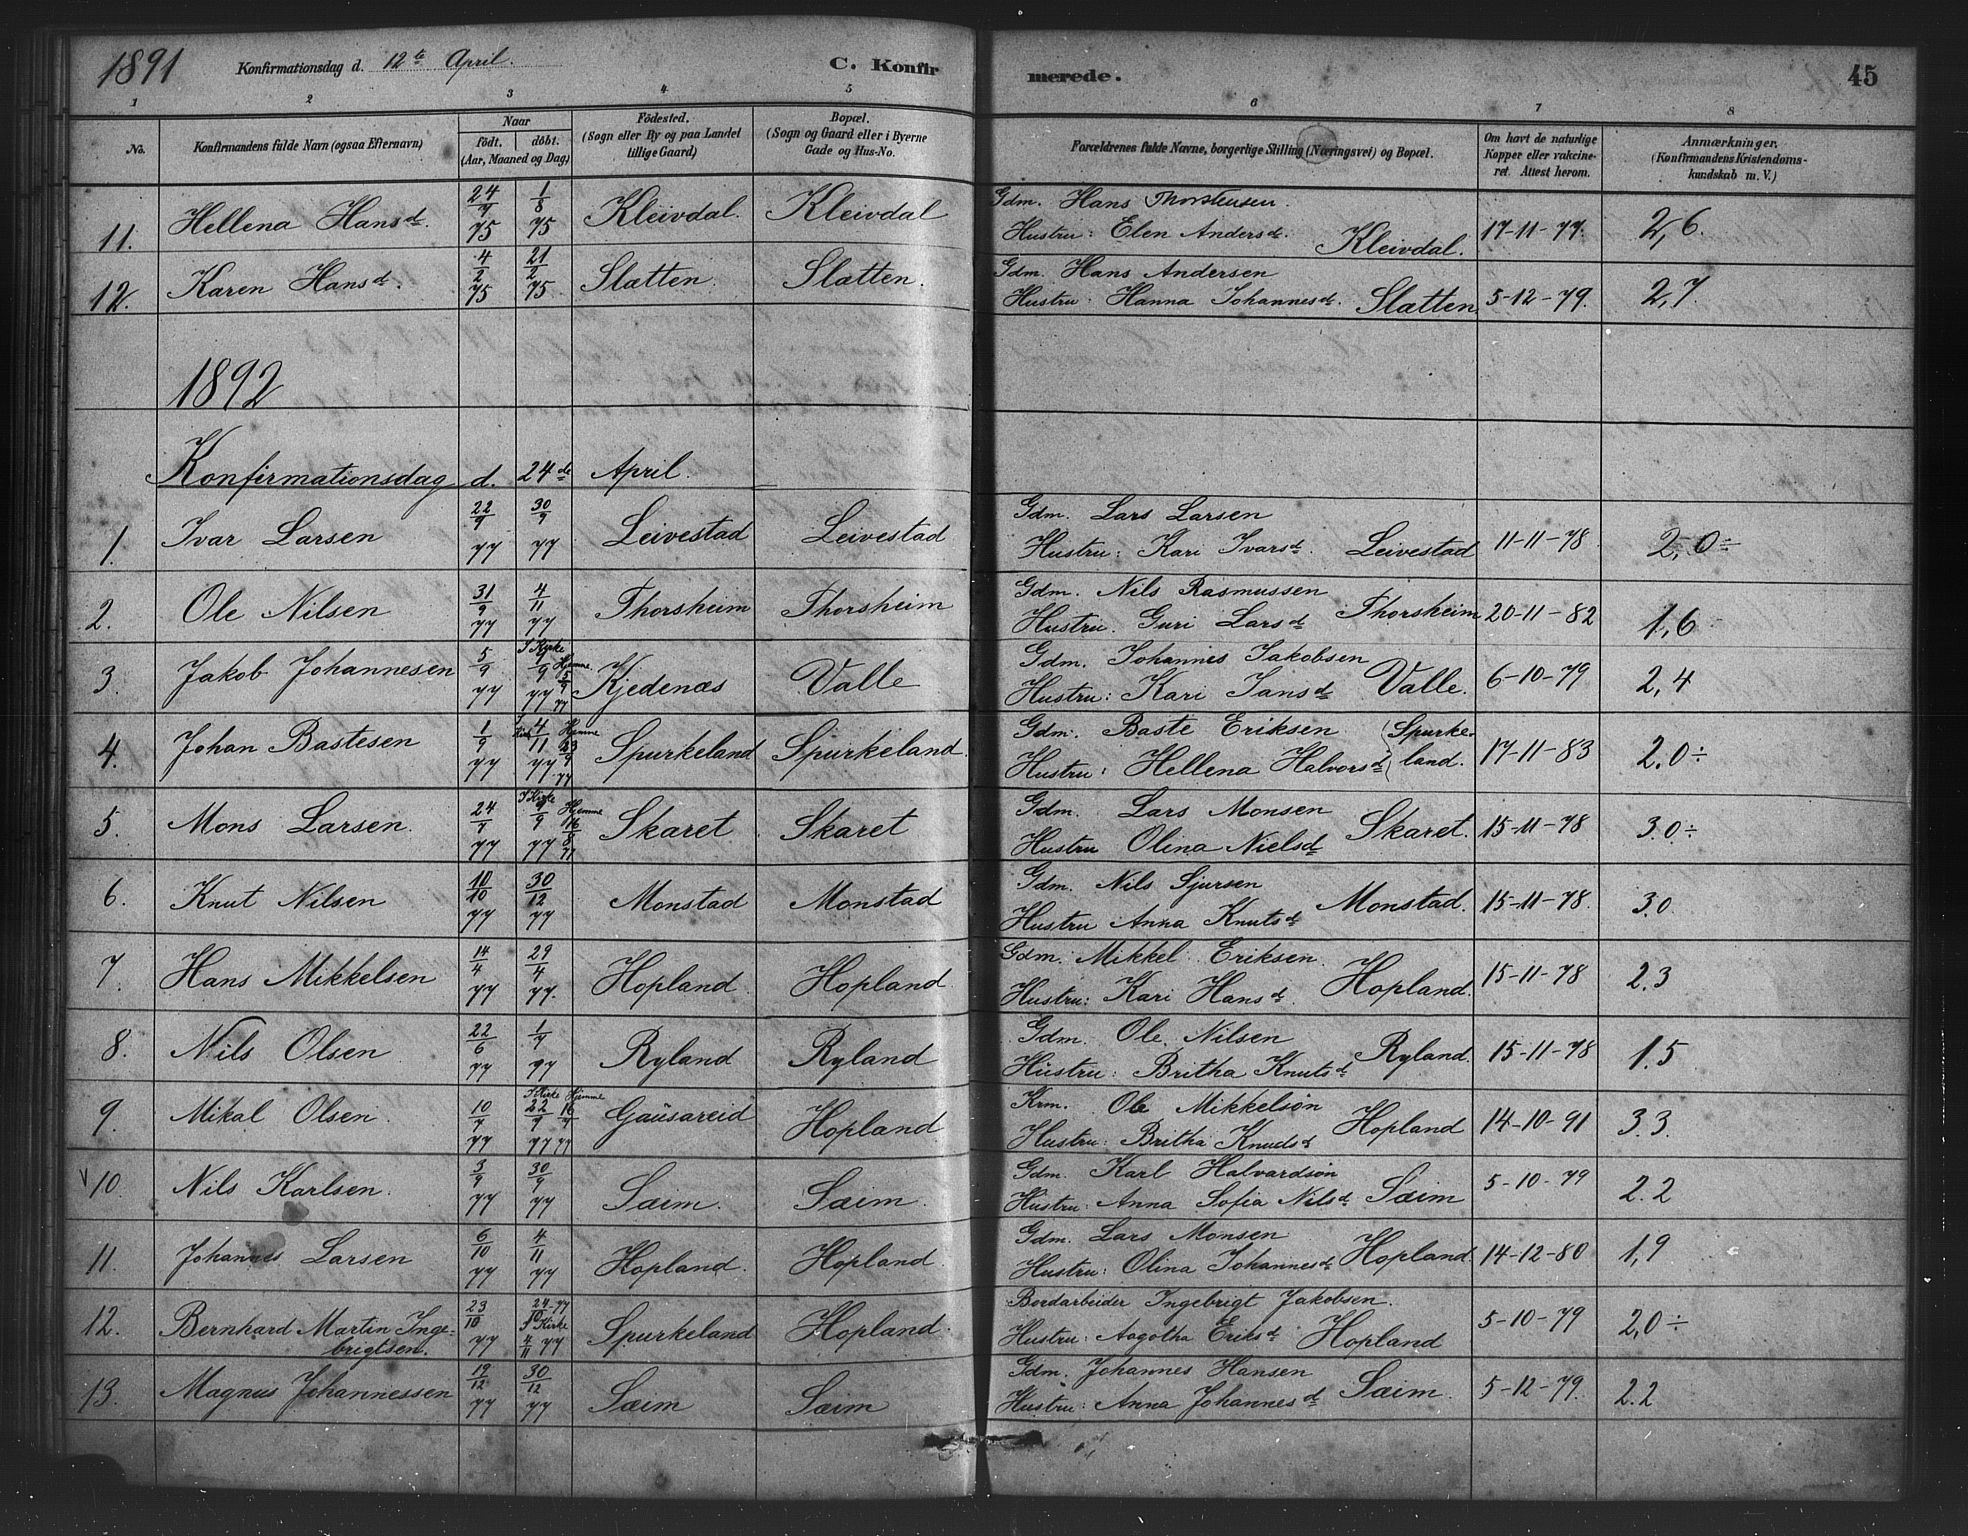 1891 Konfirmationsdag d. 12te April. C. Konfirmerede. 45
1 2 3 4 5 6 7 8
No. Konfirmandens fulde Navn (ogsaa Efternavn) Naar født. døbt. (Aar, Maaned og Dag) Födested. (Sogn eller By og paa Landet tillige Gaard) Bopæl. (Sogn og Gaard eller i Byerne Gade og Hus-No. Forældrenes fulde Navne, borgerlige Stilling (Næringsvei) og Bopæl. Om havt de naturlige Kopper eller vakcineret. Attest herom. Anmærkninger. (Konfirmandens Kristendomskundskab m. V.)
11. Hellena Hansd. 24/7 75 1/8 75 Kleivdal. Kleivdal Gdm. Hans Thorstensen. Hustru: Elen Andersd. Kleivdal. 17-11-77. 2,6.
12. Karen Hansd. 4/2 75 21/2 75 Slatten. Slatten. Gdm. Hans Andersen Hustru: Hanna Johannesd. Slatten 5-12-79. 2,7.
1892
Konfirmationsdag d. 24de April.
1. Ivar Larsen 22/9 77 30/9 77 Leivestad Leivestad Gdm. Lars Larsen Hustru: Kari Ivarsd. Leivestad 11-11-78. 2,0÷
2. Ole Nilsen 31/9 77 4/11 77 Thorsheim Thorsheim Gdm. Nils Rasmussen Hustru. Guri Larsd Thorsheim 20-11-82 1,6
3. Jakob Johannesen 5/9 77 I Kirke 77 Hjemme 77 Kjedenæs Valle Gdm. Johannes Jakobsen Hustru: Kari Jansd Valle. 6-10-79 2,4
4. Johan Bastesen 1/9 77 4/11 77 Hjemme 77 Spurkeland Spurkeland. Gdm. Baste Eriksen Hustru: Hellena Halvorsd Spurkeland. 17-11-83 2.0÷
5. Mons Larsen. 24/7 77 I Kirke 77 Hjemme 16/8 77 Skaret Skaret Gdm. Lars Monsen Hustru Olina Nielsd Skaret. 15-11-78 3.0÷
6. Knut Nilsen 10/10 77 30/12 77 Monstad Monstad Gdm. Nils Sjursen Hustru Anna Knutsd Monstad. 15-11-78. 3.0.
7. Hans Mikkelsen 14/4 77 29/4 77. Hopland. Hopland. Gdm. Mikkel Eriksen. Hustru: Kari Hansd. Hopland. 15-11-78 2.3
8. Nils Olsen 22/6 77 1/7 77 Ryland Ryland Gdm. Ole Nilsen Hustru: Britha Knutsd Ryland. 15-11-78 1.5
9. Mikal Olsen 10/7 77 I Kirke 22/9 77 Hjemme 77 Gausareid Hopland Krm. Ole Mikkelsøn Hustru: Britha Knudsd Hopland 14-10-91 3.3.
10. Nils Karlsen. 3/9 77 30/9 77 Sæim. Sæim. Gdm. Karl Halvardsøn Hustru: Anna Sofia Nilsd Sæim 5-10-79 2.2
11. Johannes Larsen 6/10 77 4/11 77 Hopland. Hopland. Gdm. Lars Monsen Hustru: Olina Johannesd Hopland 14-12-80 1,9
12. Bernhard Martin Ingebrigtsen. 23/10 77 24-77 I Kirke 4/11 77 Spurkeland Hopland. Bordarbeider Ingebrigt Jakobsen. Hustru: Aagotha Eriksd Hopland 5-10-79 2,0÷
13. Magnus Johannessen 19/12 77 30/12 77 Sæim Sæim Gdm. Johannes Hansen Hustru: Anna Johannesd Sæim. 5-12-79. 2.2